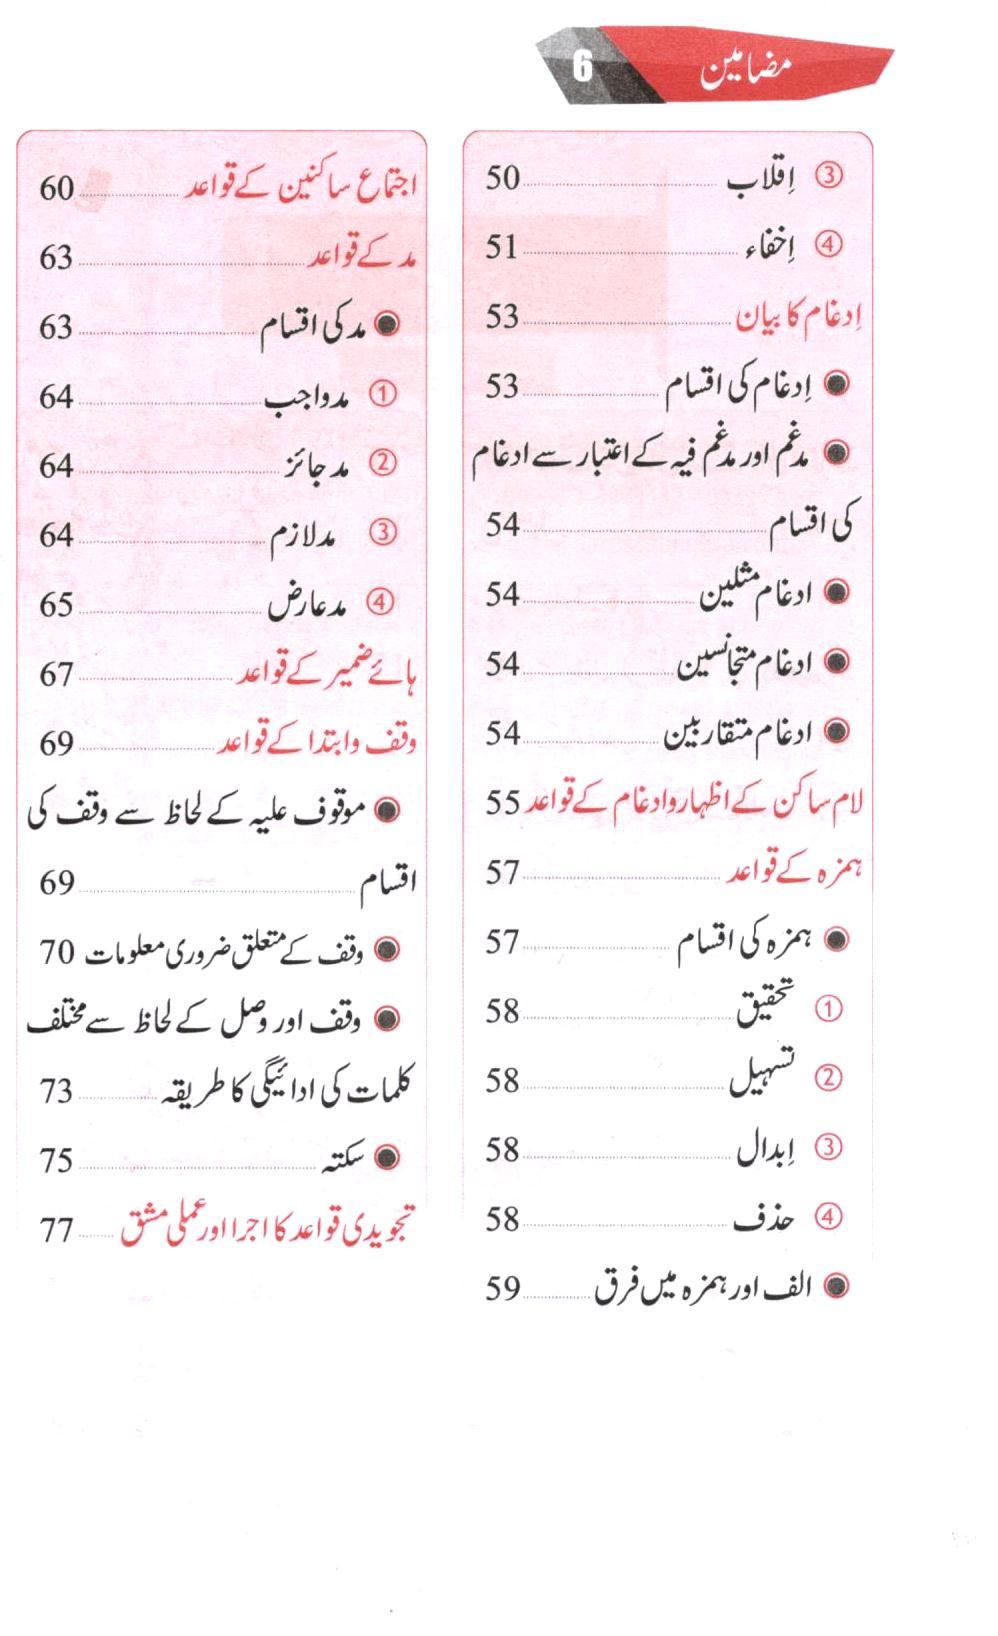 مضامین 6
③ اِقلاب 50
④ اِخفاء 51
اِدغام کا بیان 53
اِدغام کی اقسام 53
مدغم اور مدغم فیہ کے اعتبار سے ادغام
کی اقسام 54
ادغام مثلین 54
ادغام متجانسین 54
ادغام متقاربین 54
لام ساکن کے اظہار و ادغام کے قواعد 55
ہمزہ کے قواعد 57
ہمزہ کی اقسام 57
① تحقیق 58
② تسہیل 58
③ اِبدال 58
④ حذف 58
الف اور ہمزہ میں فرق 59
اجتماع ساکنین کے قواعد 60
مد کے قواعد 63
مد کی اقسام 63
① مد واجب 64
② مد جائز 64
③ مد لازم 64
④ مد عارض 65
ہائے ضمیر کے قواعد 67
وقف و ابتدا کے قواعد 69
موقوف علیہ کے لحاظ سے وقف کی
اقسام 69
وقف کے متعلق ضروری معلومات 70
وقف اور وصل کے لحاظ سے مختلف
کلمات کی ادائیگی کا طریقہ 73
سکتہ 75
تجویدی قواعد کا اجرا اور عملی مشق 77